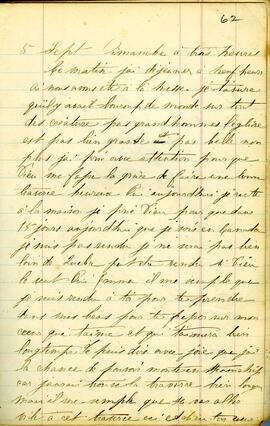 62
5 Sept Dimanche à trois heures
Ce matin j'ai déjeuner à neuf heure
ai nous avons été à la messe je t'assure
quil y avait beaucoup de monde sur tout
des créature pas grand hommes l'église
est pas bien grande et pas belle non
plus j'ai prié avec attention pour que
Dieu me fasse la grace de faire une bonne
traversé heureux Lui aujourdhui j'ai resté
à la maison je prie Dieu pour que dans
15 jours aujourdhui que je sois en Canada
je suis pas rendu je ne serai pas bien
loin de
le veut Lui il me semble que
je suis rendu à toi pour te prendre
dans mes bras pour te reposer sur mon
coeur qui t'aime et qui t'aimera bien
longtemps Je puis dire avec joie que j'ai
la chance de pouvoir monter en
car j'aurais trouvé la traversé bien longue
mais il me semble que je vas aller
vite à cet traversé ici